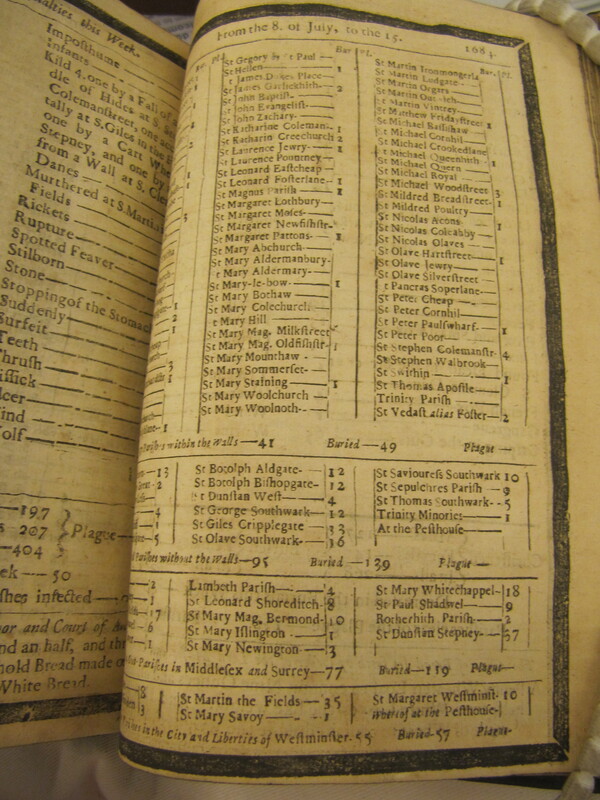 alties this Week.
Imposthume
Infants
Kild 4. one by a Fall
die of Hides at
Colemanstreet, one
tally at S. Giles in the
one by a Cart
Stepney, and one by
from a Wall at S.
Danes
Murthered at S. Martin
Fields
Rickets
Rupture
Spotted Feaver
Stilborn
Stone
Stopping of the Stomach
Suddenly
Surfeit
Teeth
Thrush
Tissick
lcer
ind
olf
197
207
404
Plague
50
shes infected
or and Court of
nd an half, and the
hold Bread made
White Bread.
From the 8. of July, to the 15. 1684.
Bur. Pl.
St Gregory by St Paul
St Hellen 1
St James Dukes Place
St James Garlickhith 2
St John Baptist
St John Evangelist
St John Zachary
St Katharine Coleman 1
St Katharin Creechurch 2
St Laurence Jewry 1
St Laurence Pountney
St Leonard Eastcheap
St Leonard Fosterlane 1
St Magnus Parish 1
St Margaret Lothbury
St Margaret Moses
St Margaret Newfishstr
St Margaret Pattons 1
St Mary Abchurch
St Mary Aldermanbury
St Mary Aldermary
St Mary-le-bow 1
St Mary Bothaw
St Mary Colechurch
St Mary Hill
St Mary Mag. Milkstreet
St Mary Mag. Oldfishstr
St Mary Mounthaw
St Mary Sommerset
St Mary Staining 1
St Mary Woolchurch
St Mary Woolnoth
Bur. Pl.
St Martin Ironmongerla
St Martin Ludgate
St Martin Orgars
St Martin Outwich
St Martin Vintrey
St Matthew Fridaystreet 1
St Michael Bassishaw
St Michael Cornhil
St Michael Crookedlane
St Michael Queenhith 1
St Michael Quern
St Michael Royal
St Michael Woodstreet 3
St Mildred Breadstreet 1
St Mildred Poultry
St Nicolas Acons 1
St Nicolas Coleabby
St Nicolas Olaves
St Olave Hartstreet 1
St Olave Jewry
St Olave Silverstreet
St Pancras Soperlane
St Peter Cheap
St Peter Cornhil
St Peter Paulswharf 1
St Peter Poor
St Stephen Colemanstr 4
St Stephen Walbrook
St Swithin 1
St Thomas Apostle
Trinity Parish
St Vedast alias Foster 2
Parishes within the Walls—41 Buried—49 Plague—
St Botolph Aldgate 12
St Botolph Bishopgate 12
St Dunstan West 4
St George Southwark 12
St Giles Cripplegate 33
St Olave Southwark 36
St Saviouress Southwark 10
St Sepulchres Parish 9
St Thomas Southwark 5
Trinity Minories 1
At the Pesthouse
Parishes without the Walls—95 Buried—139 Plague—
Lambeth Parish 4
St Leonard Shoreditch 8
St Mary Mag. Bermond 10
St Mary Islington 1
St Mary Newington 3
St Mary Whitechappel 18
St Paul Shadwel 9
Rotherhith Parish 2
St Dunstan Stepney 37
Parishes in Middlesex and Surrey—77 Buried—119 Plague—
St Martin the Fields—35
St Mary Savoy 1
St Margaret Westminst. 10
Whereof at the Pesthouse
in the City and Liberties of Westminster. 55 Buried-57 Plague-